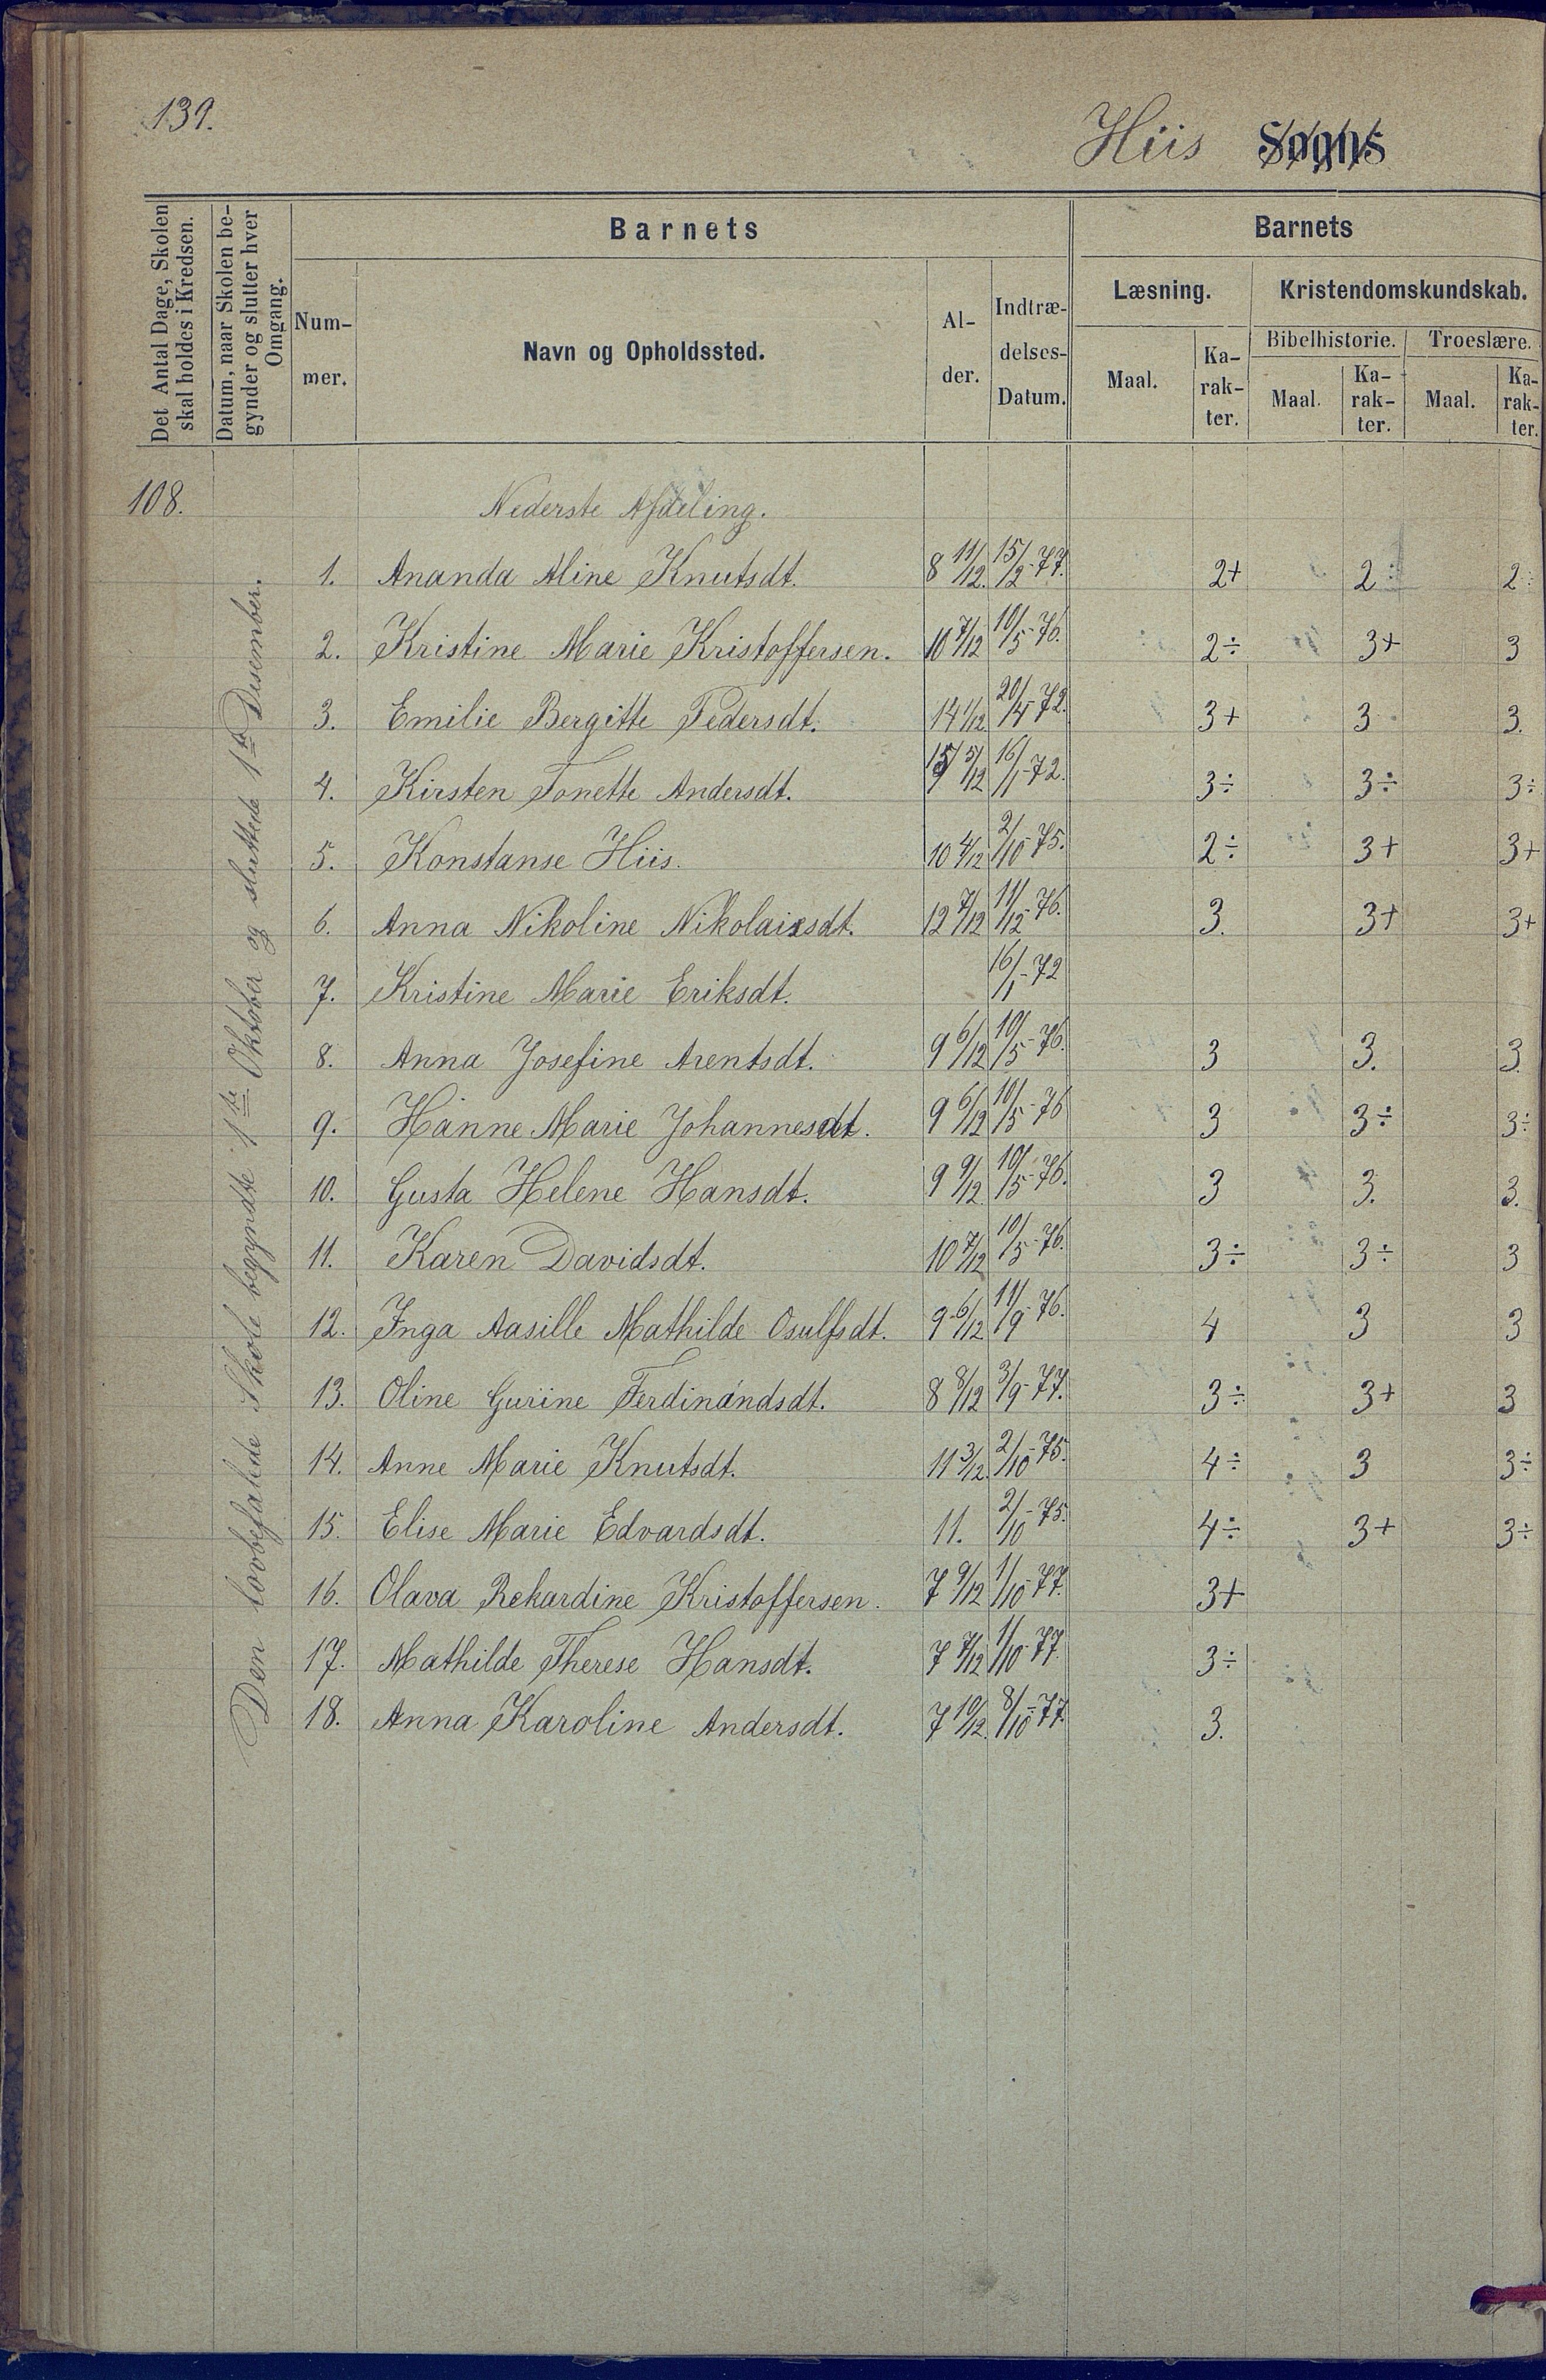 139.
Hiis Sogns
Det Antal Dage, Skolen skal holdes i Kredsen.
Datum, naar Skolen begynder og slutter hver Omgang.
Barnets
Barnets
Nummer.
Navn og Opholdssted.
Alder.
Indtrædelses-Datum.
Læsning.
Kristendomskundskab.
Bibelhistorie.
Troeslære.
Maal.
Karakter.
Maal.
Karakter.
Maal.
Karakter.
108.
Nederste Afdeling.
Den lovbefalede Skole begyndte 1ste Oktober og sluttede 1ste Desember.
1. Ananda Aline Knutsdt. 8 11/12. 15/2-77. 2+ 2÷ 2÷
2. Kristine Marie Kristoffersen. 10 7/12 10/5-76. 2÷ 3+ 3
3. Emilie Bergitte Pedersdt. 14 1/12. 20/4-72. 3+ 3 3.
4. Kirsten Tonette Andersdt. 5/12 16/1-72. 3÷ 3÷ 3÷
5. Konstanse Hiis. 10 4/12 2/10-75. 2÷ 3+ 3+
6. Anna Nikoline Nikolaisdt. 12 7/12 11/12-76. 3. 3+ 3+
7. Kristine Marie Eriksdt. 16/1-72
8. Anna Josefine Arentsdt. 9 6/12 10/5-76. 3 3. 3.
9. Hanne Marie Johannesdt. 9 6/12 10/5-76 3 3÷ 3÷
10. Gusta Helene Hansdt. 9 9/12 10/5-76. 3 3. 3.
11. Karen Davidsdt. 10 7/12 10/5-76. 3÷ 3÷ 3
12. Inga Aasille Mathilde Osulfsdt. 9 6/12 11/9-76. 4 3 3
13. Oline Gurine Ferdinandsdt. 8 8/12 3/9-77. 3÷ 3+ 3
14. Anne Marie Knutsdt. 11 3/12. 2/10-75. 4÷ 3 3÷
15. Elise Marie Edvardsdt. 11. 2/10-75. 4÷ 3+ 3÷
16. Olava Rekardine Kristoffersen. 7 9/12 1/10-77. 3+
17. Mathilde Therese Hansdt. 7 7/12 1/10-77. 3÷
18. Anna Karoline Andersdt. 7 10/12. 8/10-77. 3.